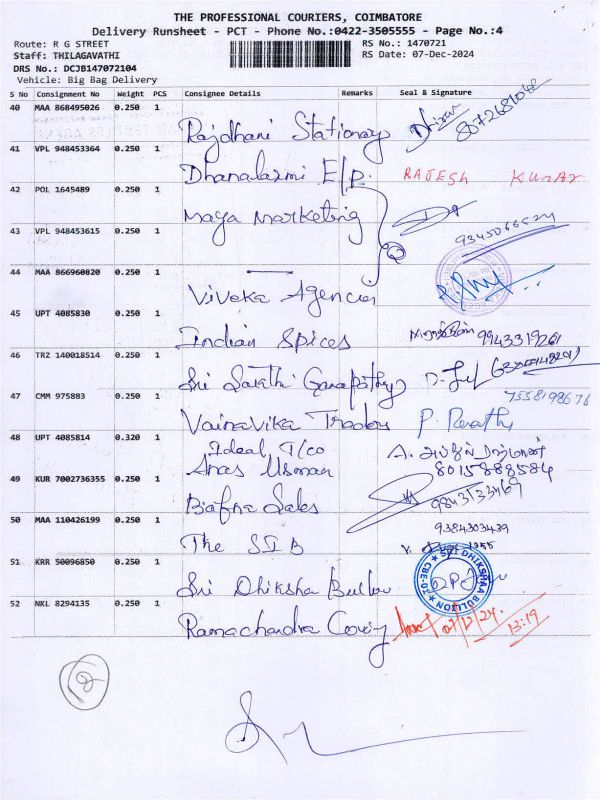 THE PROFESSIONAL COURIERS, COIMBATORE
Delivery Runsheet - PCT - Phone No.:0422-3505555 - Page No.:4
Route: R G STREET RS No.: 1470721
Staff: THILAGAVATHI RS Date: 07-Dec-2024
DRS No.: DCJB147072104
Vehicle: Big Bag Delivery
S No Consignment No Weight PCS Consignee Details Remarks Seal & Signature
40 MAA 868495026 0.250 1 Rajdhani Stationary
41 VPL 948453364 0.250 1 Dhanalaxmi E/P. RAJESH KUMAR
42 POL 1645489 0.250 1 Maya Marketing
43 VPL 948453615 0.250 1 9345066524
44 MAA 866960820 0.250 1 Viveka Agencies
45 UPT 4085830 0.250 1 Indian Spices 9943319261
46 TRZ 140018514 0.250 1 Sri Sarathi Ganapathy
47 CMM 975883 0.250 1 Vainavika Traders 7558198676
48 UPT 4085814 0.320 1 Ideal T/co
Anas Usman 8015888584
49 KUR 7002736355 0.250 1 Bafna Sales 9843133469
50 MAA 110426199 0.250 1 The SIB 9384303439
51 KRR 50096850 0.250 1 Sri Dhiksha Bullion
SRI DHIKSHAA BULLION
52 NKL 8294135 0.250 1 Ramachandra 13:19